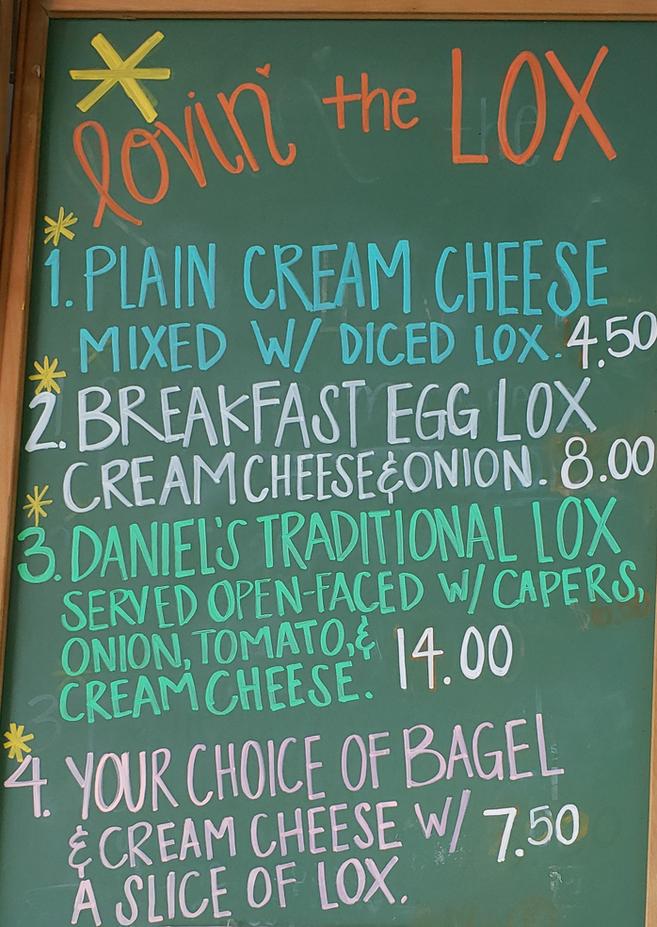 lovin' the LOX
1. PLAIN CREAM CHEESE
MIXED W/ DICED LOX. 4.50
2. BREAKFAST EGG LOX
CREAM CHEESE & ONION. 8.00
3. DANIEL'S TRADITIONAL LOX
SERVED OPEN-FACED W/ CAPERS,
ONION, TOMATO, & 14.00
CREAM CHEESE.
4. YOUR CHOICE OF BAGEL
& CREAM CHEESE W/ 7.50
A SLICE OF LOX.